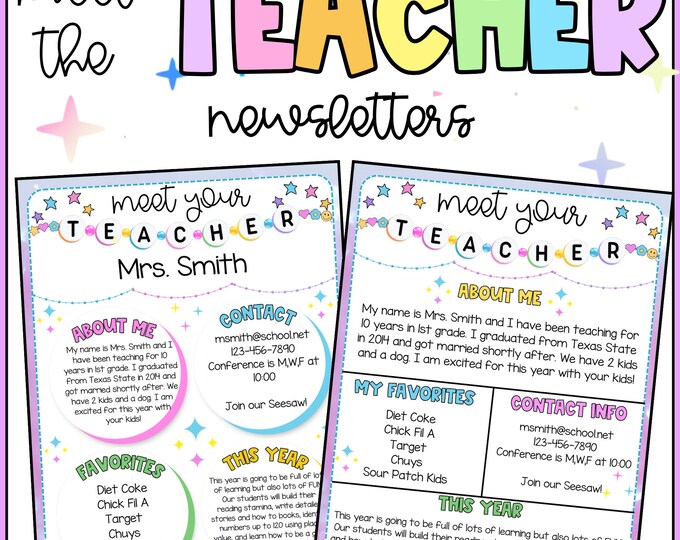 meet
the
TEACHER
newsletters
meet your
TEACHER
Mrs. Smith
ABOUT ME
My name is Mrs. Smith and I
have been teaching for 10
years in 1st grade. I graduated
from Texas State in 2014 and
got married shortly after. We
have 2 kids and a dog. I am
excited for this year with your
kids!
CONTACT
msmith@school.net
123-456-7890
Conference is M,W,F at
10:00
Join our Seesaw!
FAVORITES
Diet Coke
Chick Fil A
Target
Chuys
THIS YEAR
This year is going to be full of lots
of learning but also lots of FUN!
Our students will build their
reading stamina, write detailed
stories and how to books, identify
numbers up to 120 using place
value, and learn how to be a g
meet your
TEACHER
ABOUT ME
My name is Mrs. Smith and I have been teaching for
10 years in 1st grade. I graduated from Texas State
in 2014 and got married shortly after. We have 2 kids
and a dog. I am excited for this year with your kids!
MY FAVORITES
Diet Coke
Chick Fil A
Target
Chuys
Sour Patch Kids
CONTACT INFO
msmith@school.net
123-456-7890
Conference is M,W,F at 10:00
Join our Seesaw!
THIS YEAR
This year is going to be full of lots of learning but also lots of
Our students will build their